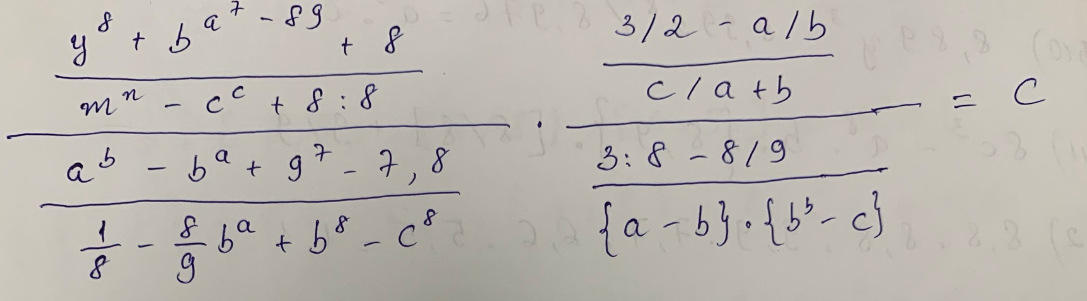 \frac{\frac{y^8 + b^{a^7 - 89} + 8}{m^n - c^c + 8 : 8}}{\frac{a^b - b^a + 9^7 - 7,8}{\frac{1}{8} - \frac{8}{9} b^a + b^8 - c^8}} \cdot \frac{\frac{3/2 - a/b}{c/a + b}}{\frac{3:8 - 8/9}{\{a - b\} \cdot \{b^b - c\}}} = c